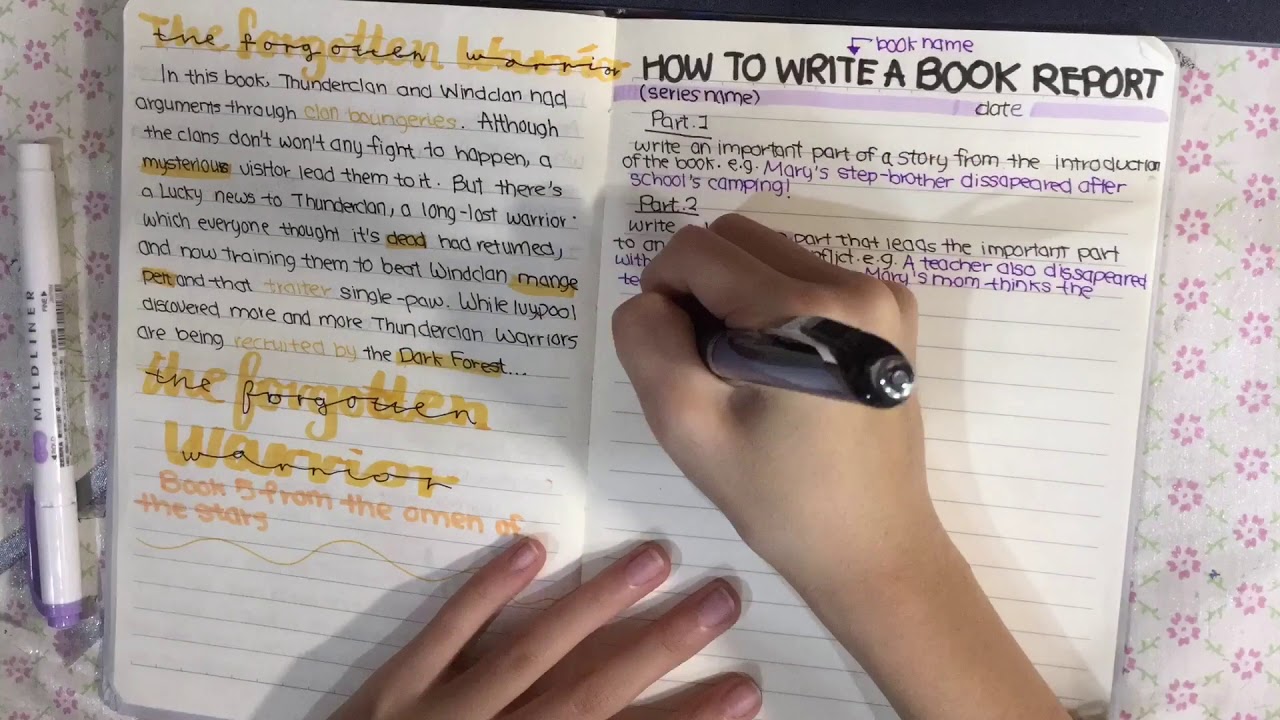 the forgotten warrior
In this book, Thunderclan and Windclan had
arguments through clan boungeries. Although
the clans don't won't any fight to happen, a
mysterious visitor lead them to it. But there's
a Lucky news to Thunderclan, a long-lost warrior
which everyone thought it's dead had returned,
and now training them to beat Windclan mange
pelt and that traiter single-paw. While Ivypool
discovered more and more Thunderclan Warriors
are being recruited by the Dark Forest...
the forgotten
warrior
Book 5 from the omen of
the stars
book name
HOW TO WRITE A BOOK REPORT
(series name) date
Part.1
write an important part of a story from the introduction
of the book. e.g. Mary's step-brother dissapeared after
school's camping!
Part.2
write part that leads the important part
to an e.g. A teacher also dissapeared
Mary's mom thinks the
MILDLINER